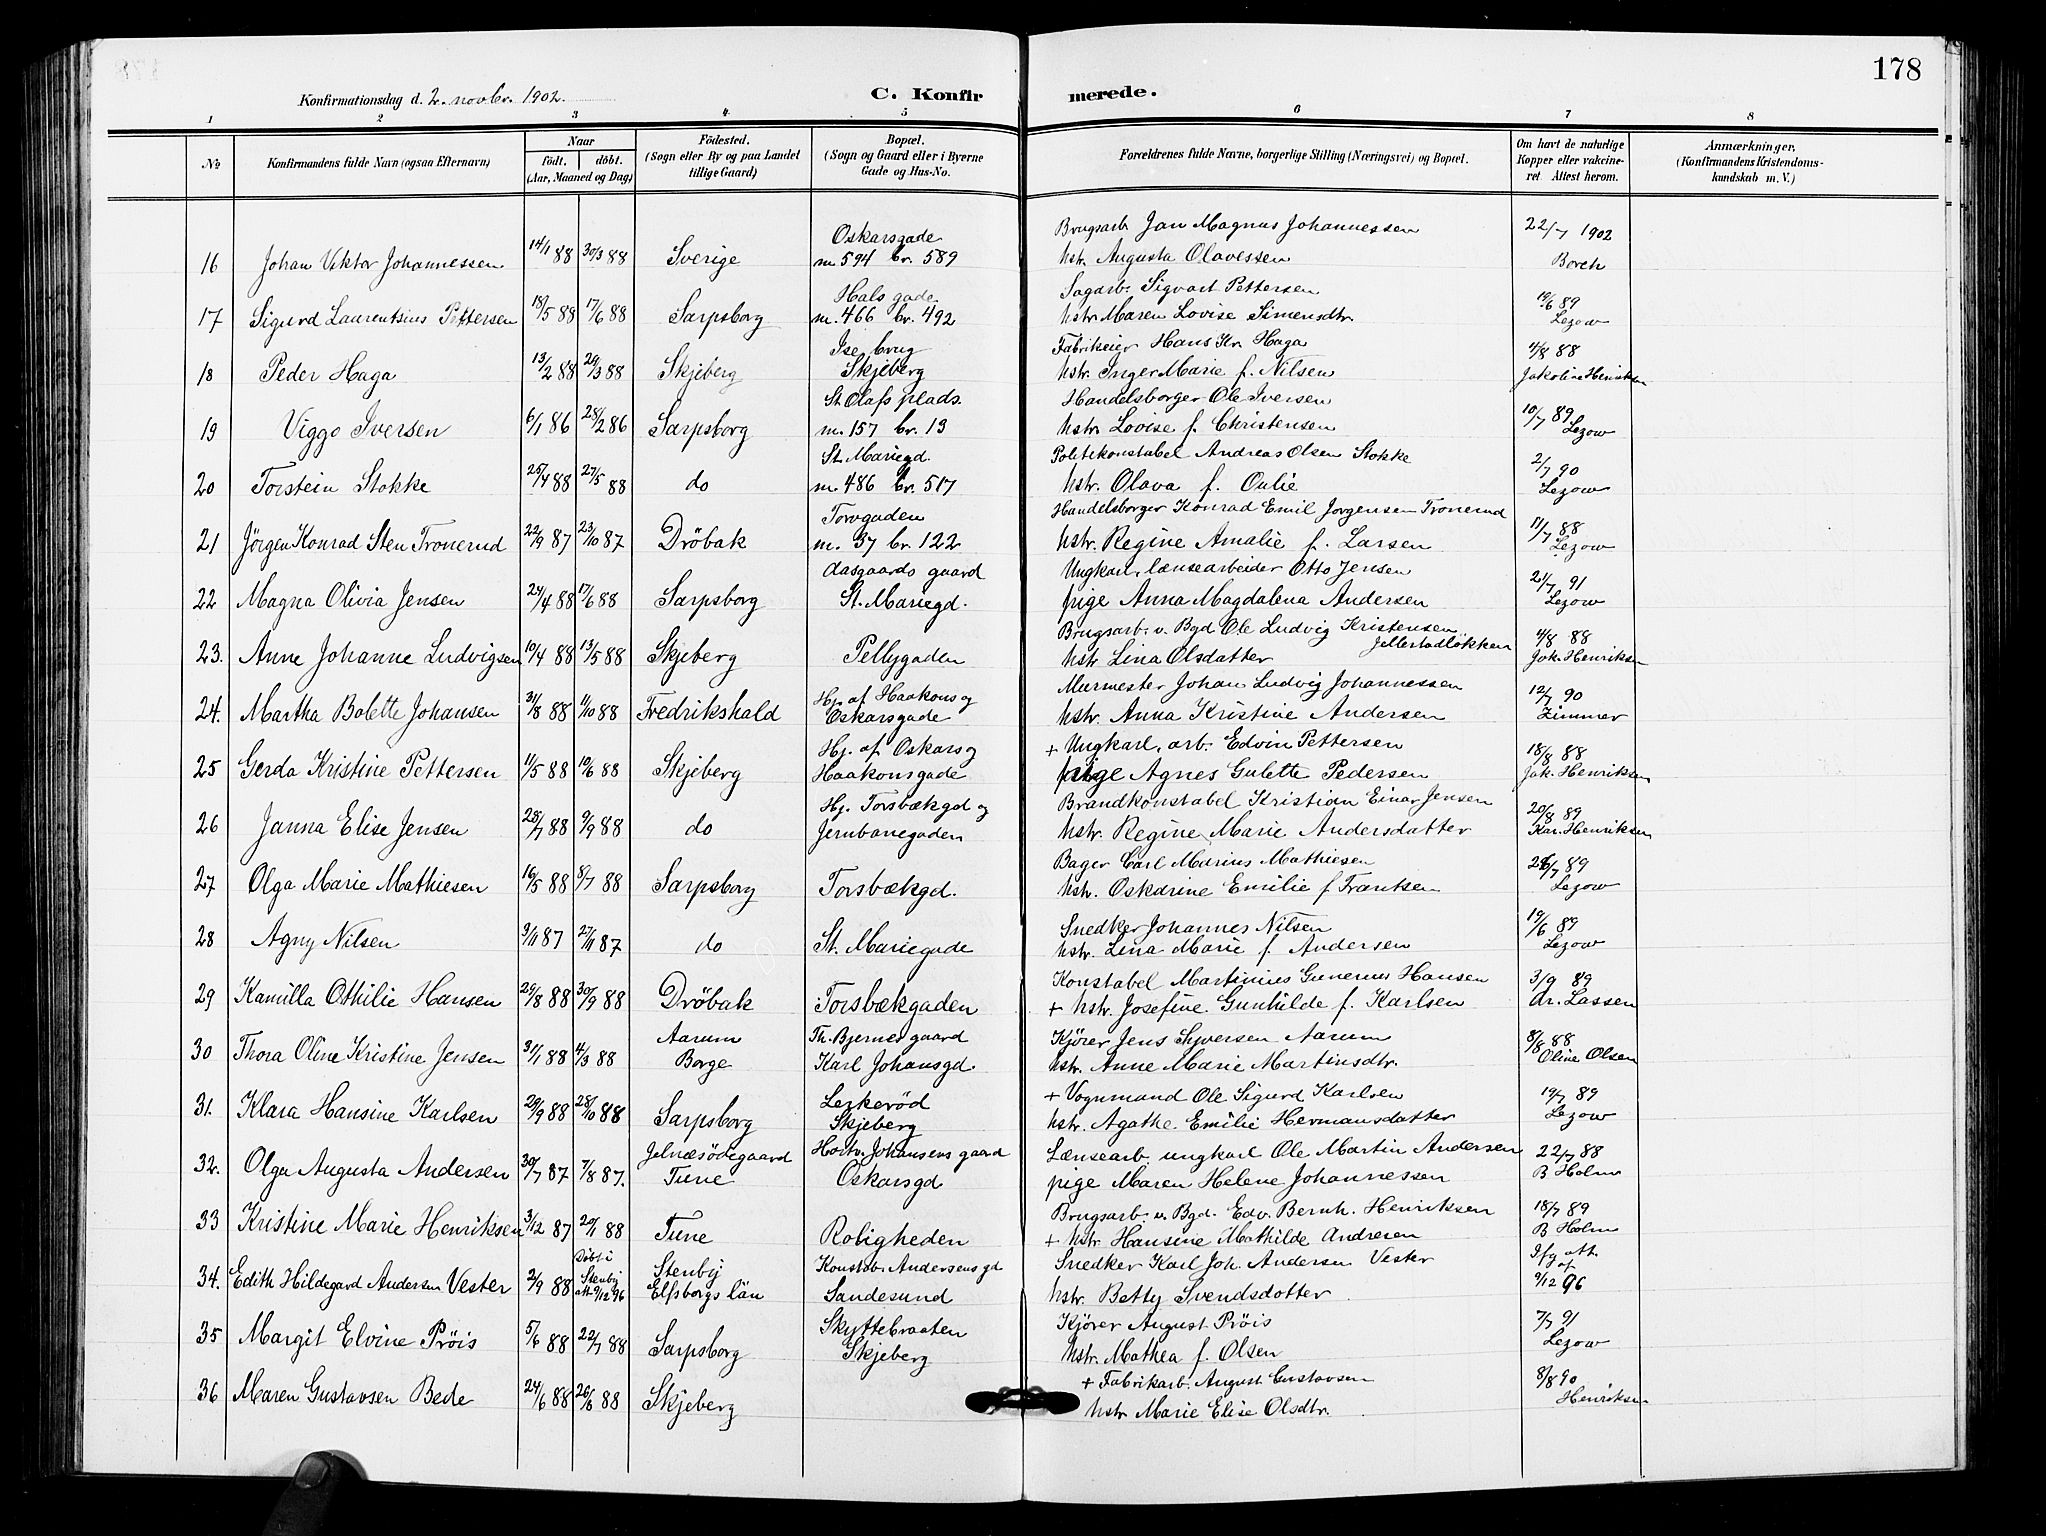 178
Konfirmationsdag d. 2. novbr. 1902.
C. Konfirmerede.
1 2 3 4 5 6 7 8
No
Konfirmandens fulde Navn (ogsaa Efternavn)
Naar
födt. döbt.
(Aar, Maaned og Dag)
Födested.
(Sogn eller By og paa Landet
tillige Gaard)
Bopæl.
(Sogn og Gaard eller i Byerne
Gade og Hus-No.
Forældrenes fulde Navne, borgerlige Stilling (Næringsvei) og Bopæl.
Om havt de naturlige
Kopper eller vakcine-
ret. Attest herom.
Anmærkninger.
(Konfirmandens Kristendoms-
kundskab m. V.)
Oskarsgade Brugsarb. Jan Magnus Johannessen 22/7 1902
16 Johan Viktor Johannessen 14/1 88 30/3 88 Sverige m. 594 br. 589 hstr. Augusta Olavessen Borch
Hals gade Sagarb. Sigvart Pettersen 19/6 89
17 Sigurd Laurentsius Pettersen 18/5 88 17/6 88 Sarpsborg m. 466 br. 492 hstr. Maren Lovise Simensdtr. Lezow
Ise brug Fabrikeier Hans Kr. Haga 11/8 88
18 Peder Haga 13/2 88 29/3 88 Skjeberg Skjeberg hstr. Inger Marie f. Nilsen Jakoline Henriksen
St. Olafs plads. Handelsborger Ole Iversen 10/7 89
19 Viggo Iversen 6/1 86 28/2 86 Sarpsborg m. 157 br. 13 hstr. Lovise f. Christensen Lezow
St. Mariegd. Politikonstabel Andreas Olsen Stokke 2/7 90
20 Torstein Stokke 25/4 88 27/5 88 do m. 486 br. 517 hstr. Olava f. Oulie Lezow
Torvgaden Handelsborger Konrad Emil Jørgensen Tronerud 11/7 88
21 Jörgen Konrad Sten Tronerud 22/9 87 23/10 87 Dröbak m. 37 br. 122 hstr. Regine Amalie f. Larsen Lezow
Aasgaards gaard Ungkarl, lænsearbeider Otto Jensen 21/7 91
22 Magna Olivia Jensen 24/4 88 17/6 88 Sarpsborg St. Mariegd. pige Anna Magdalena Andersen Lezow
Brugsarb. v. Bgd Ole Ludvig Kristensen 4/8 88
Jellestadløkken
23. Anne Johanne Ludvigsen 10/4 88 13/5 88 Skjeberg Pellygaden hstr. Lina Olsdatter Jak. Henriksen
Hj. af Haakons og Murmester Johan Ludvig Johannessen 12/7 90
24. Martha Bolette Johansen 31/8 88 11/10 88 Fredrikshald Oskarsgade hstr. Anna Kristine Andersen Zimmer
Hj. af Oskars og + Ungkarl, arb. Edvin Pettersen 18/8 88
25 Gerda Kristine Pettersen 11/5 88 10/6 88 Skjeberg Haakonsgade pige Agnes Gulette Pedersen Jak. Henriksen
Hj. Torsbækgd og Brandkonstabel Kristian Einar Jensen 20/8 89
26 Janna Elise Jensen 28/7 88 9/9 88 do Jernbanegaden hstr. Regine Marie Andersdatter Kar. Henriksen
Bager Carl Marius Mathiesen 26/7 89
27 Olga Marie Mathiesen 16/5 88 8/7 88 Sarpsborg Torsbækgd. hstr. Oskarine Emilie f Frantsen Lezow
Snedker Johannes Nilsen 19/6 89
28 Agny Nilsen 3/11 87 27/11 87 do St. Mariegade hstr. Lina Marie f. Andersen Lezow
Konstabel Martinius Gunerius Hansen 3/9 89
29 Kamilla Othilie Hansen 29/8 88 30/9 88 Dröbak Torsbækgaden + hstr. Josefine Gunhilde f. Karlsen dr. Lassen
Aarum Th. Bjernes gaard Kjörer Jens Syversen Aarum 8/8 88
30 Thora Oline Kristine Jensen 31/1 88 4/3 88 Borge Karl Johansgd. hstr. Anne Marie Martinsdtr. Oline Olsen
Lezkeröd + Vognmand Ole Sigurd Karlsen 19/7 89
31. Klara Hansine Karlsen 29/9 88 28/10 88 Sarpsborg Skjeberg hstr. Agathe Emilie Hermansdatter Lezow
Jelnæsödegaard Hartv. Johansens gaard Lænsearb. ungkarl Ole Martin Andersen 22/7 88
32. Olga Augusta Andersen 30/7 87 7/8 87. Tune Oskarsgd pige Maren Helene Johannessen B Holm
Brugsarb. v. Bgd. Edv. Bernh. Henriksen 18/7 89
33 Kristine Marie Henriksen 3/12 87 29/1 88 Tune Roligheden + hstr. Hansine Mathilde Andresen B Holm
Döbt i Stenby Konstab. Andersens gd Snedker Karl Joh. Andersen Vester Ifg att. af
34. Edith Hildegard Andersen Vester 2/9 88 Stenby att 9/12 96 Elfsborgs län Sandesund hstr. Betty Svendsdotter 9/12 96
Skyttebraaten Kjörer August Pröis 7/7 91
35 Margit Elvine Pröis 5/6 88 22/7 88 Sarpsborg Skjeberg hstr. Mathea f. Olsen Lezow
+ Fabrikarb. August Gustavsen 8/8 90
36 Maren Gustavsen Bede 24/6 88 26/8 88 Skjeberg hstr. Marie Elise Olsdtr. Henriksen